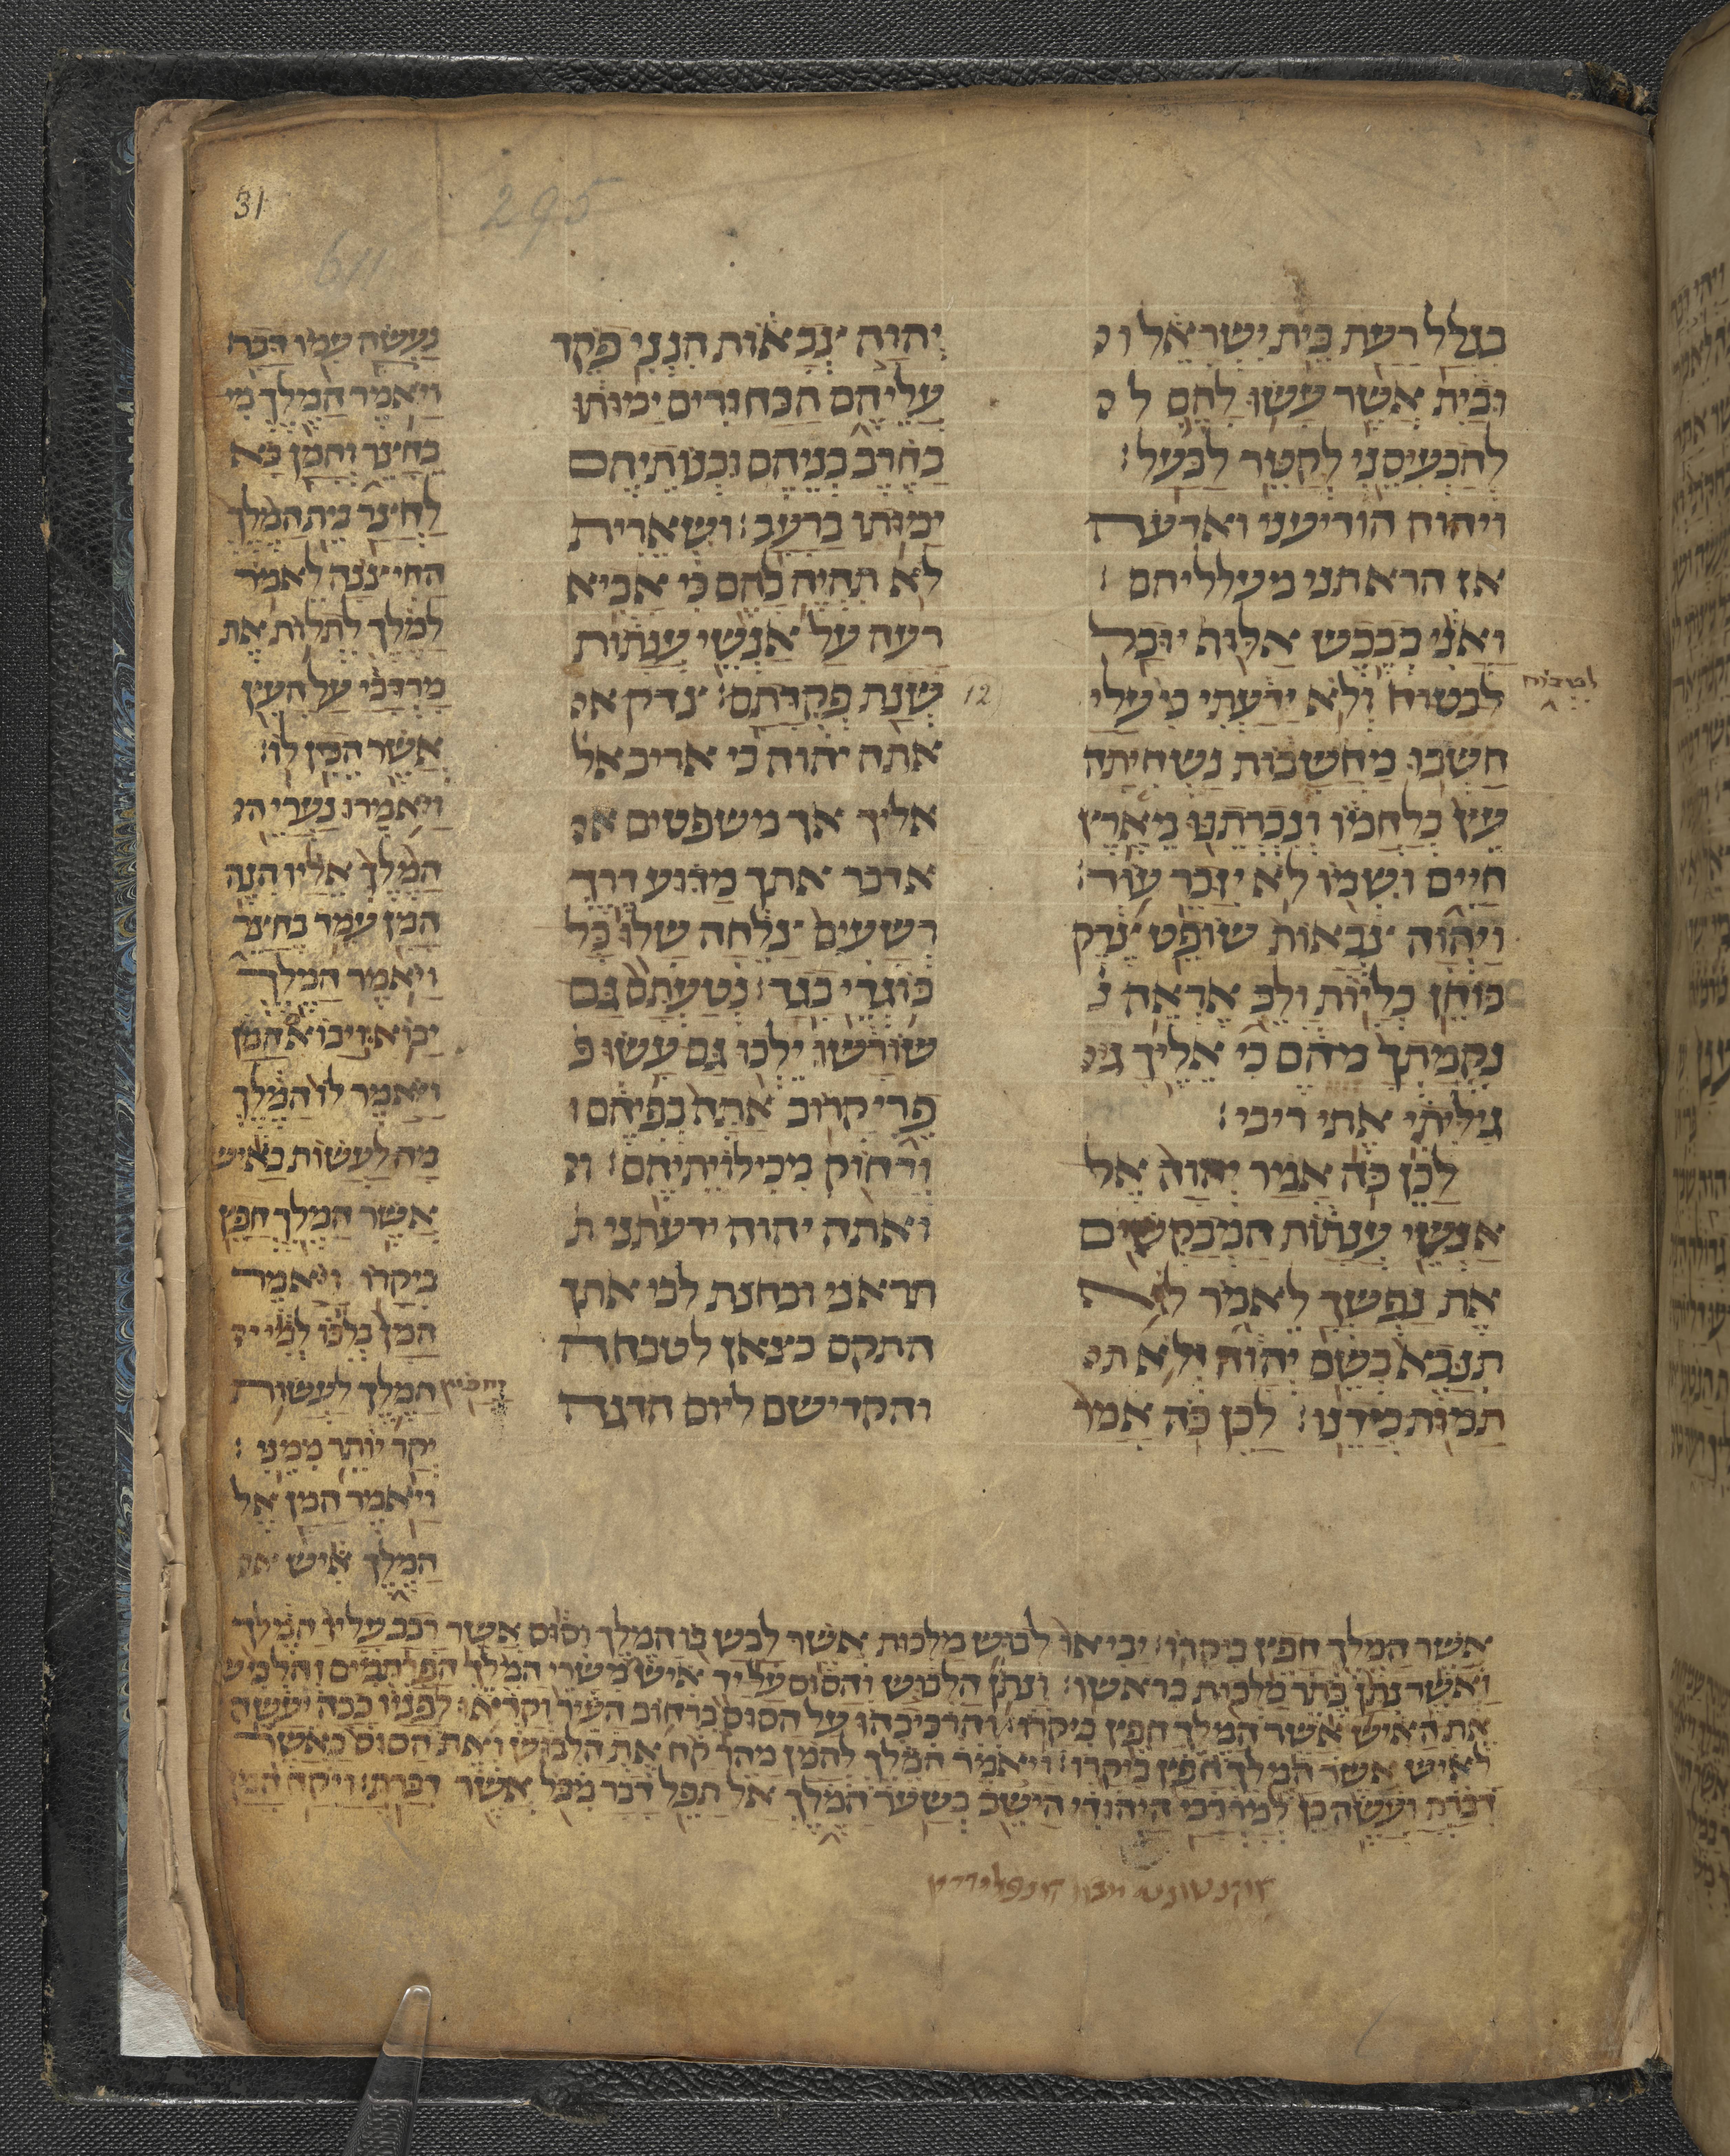 31
295
611
בגלל רעת בית ישראל ו
ובית אשר עשו להם ל
להכעיסני לקטר לבעל׃
ויהוה הודיעני ואדעה
אז הראתני מעלליהם׃
ואני ככבש אלוף יובל
לבטוח ולא ידעתי כי עלי
לטבוח
חשבו מחשבות נשחיתה
עץ בלחמו ונכרתנו מארץ
חיים ושמו לא יזכר עוד׃
ויהוה צבאות שופט צדק
בוחן כליות ולב אראה נ
נקמתך מהם כי אליך גי
גיליתי את ריבי׃
לכן כה אמר יהוה אל
אנשי ענתות המבקשים
את נפשך לאמר לא
תנבא בשם יהוה ולא ת
תמות בידנו׃ לכן כה אמר
יהוה צבאות הנני פקד
עליהם הבחורים ימותו
בחרב בניהם ובנותיהם
ימותו ברעב׃ ושארית
לא תהיה להם כי אביא
רעה על אנשי ענתות
שנת פקדתם׃ צדק א
12
אתה יהוה כי אריב אל
אליך אך משפטים א
אדבר אתך מדוע דרך
רשעים צלחה שלו כל
בוגדי בגד׃ נטעתם גם
שורשו ילכו גם עשו פ
פרי קרוב אתה בפיהם ו
ורחוק מכילויתיהם׃ ו
ואתה יהוה ידעתני ת
תראני ובחנת לבי אתך
התקם כצאן לטבחה
והקדישם ליום הרגה
נעשה עמו דבר׃
ויאמר המלך מי
בחצר והמן בא
לחצר בית המלך
החיצנה לאמר
למלך לתלות את
מרדכי על העץ
אשר הכין לו׃
ויאמרו נערי ה
המלך אליו הנה
המן עמד בחצר
ויאמר המלך
יבוא׃ ויבוא המן
ויאמר לו המלך
מה לעשות באיש
אשר המלך חפץ
ביקרו ויאמר
המן בלבו למי י
יחפץ המלך לעשות
יקר יותר ממני׃
ויאמר המן אל
המלך איש א
אשר המלך חפץ ביקרו׃ יביאו לבוש מלכות אשר לבש בו המלך וסוס אשר רכב עליו המלך
ואשר נתן כתר מלכות בראשו׃ ונתון הלבוש והסוס על יד איש משרי המלך הפרתמים והלבישו
את האיש אשר המלך חפץ ביקרו׃ והרכיבהו על הסוס ברחוב העיר וקראו לפניו ככה יעשה
לאיש אשר המלך חפץ ביקרו׃ ויאמר המלך להמן מהר קח את הלבוש ואת הסוס כאשר
דברת ועשה כן למרדכי היהודי הישב בשער המלך אל תפל דבר מכל אשר דברת׃ ויקח המן